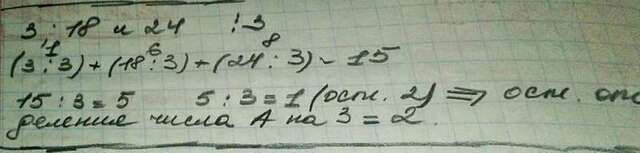 3; 18 и 24 :3
1 6 8
(3:3)+(18:3)+(24:3) = 15
15:3=5 5:3=1 (ост. 2) => ост. от
деление числа А на 3 = 2.